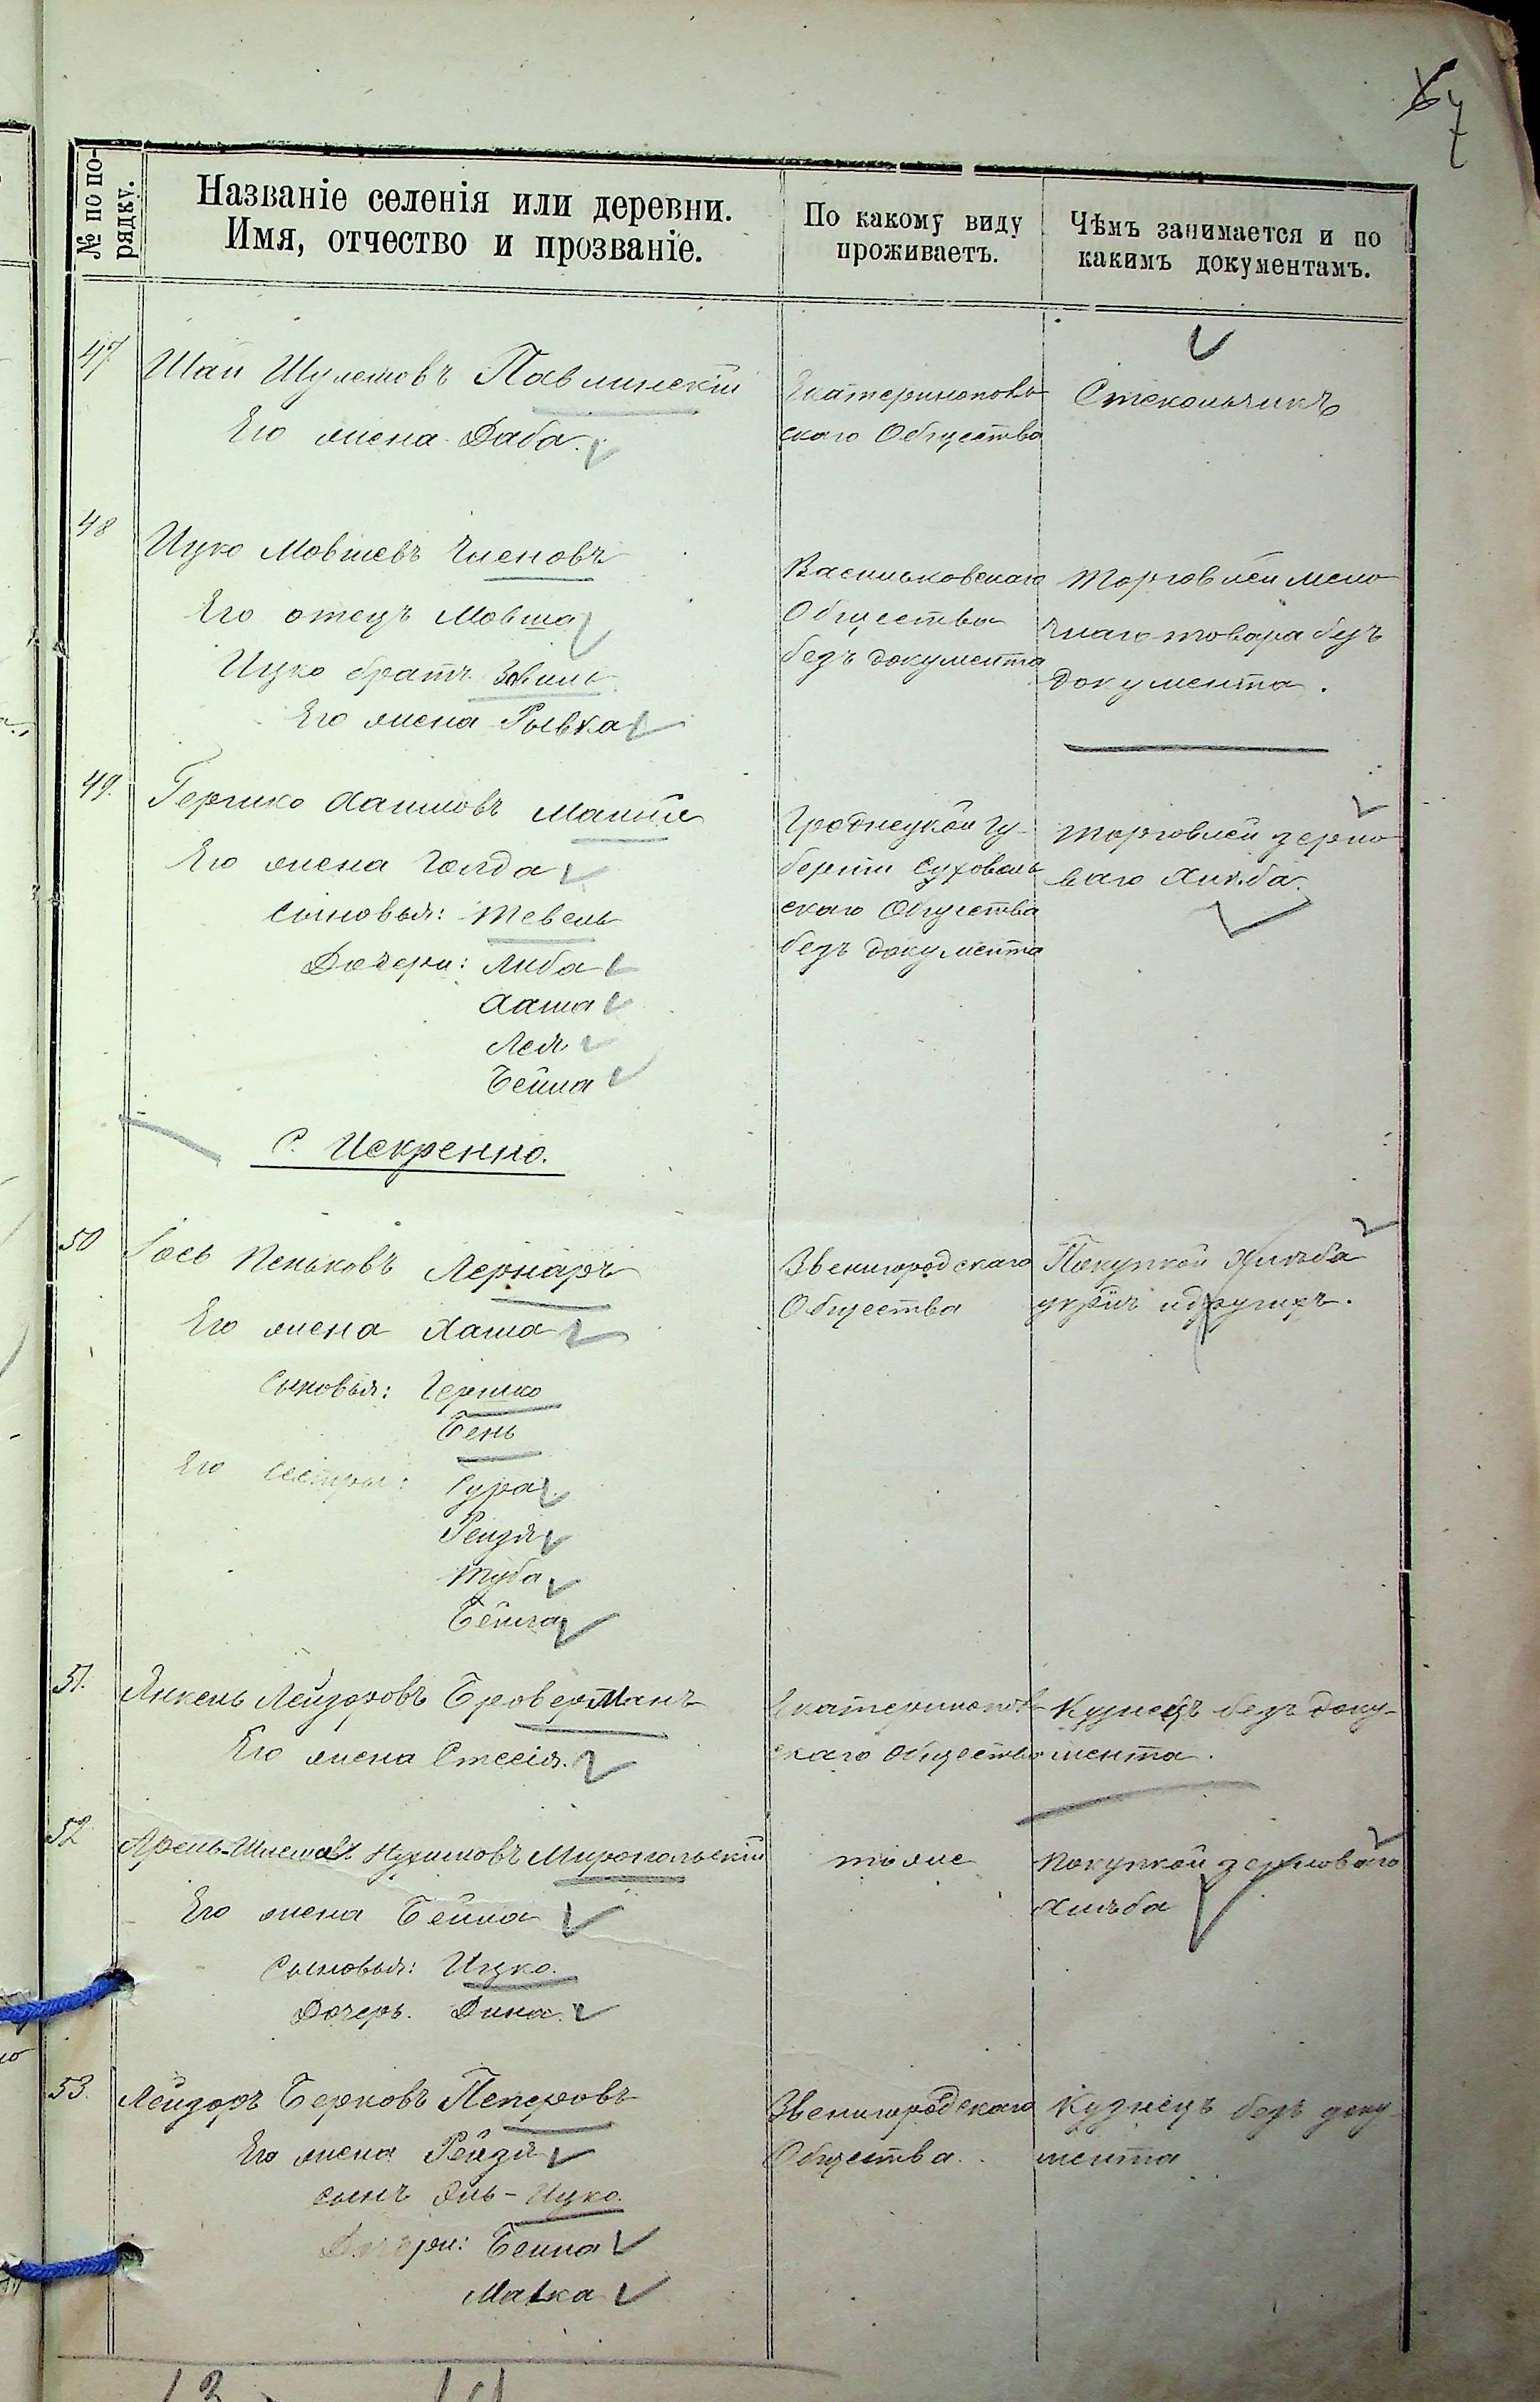 7
№ по по-
рядку.
Названіе селенія или деревни.
Имя, отчество и прозваніе.
По какому виду
проживаетъ.
Чѣмъ занимается и по
какимъ документамъ.
47
Шап Шулемовъ Павлинскій
Его жена Даба.
Екатеринополь-
скаго Общества
Стекольчикъ
48
Ицко Мовшевъ Членовъ
Его отецъ Мовша
Ицко братъ
Его жена Рывка
Васильковскаго
Общества
безъ документа
Торговлей мело-
чнаго товара безъ
документа.
49.
Гершко Хаимовъ
Его жена Голда
Сыновья: Тевель
Дочери: Люба
Хаша
Лея
Бейла
Гродненской гу-
берніи
скаго Общества
безъ документа
Торговлей зерно-
ваго хлѣба.
С. Искренно.
50
Іось Пеньковъ Лернаръ
Его жена Хаша
Сыновья: Гершко
Бень
Его сестры: Сура
Рейзя
Туба
Бейла
Звенигородскаго
Общества
Покупкой хлѣба
и другихъ.
51.
Янкель Лейзоровъ Броверманъ
Его жена Стесія.
Екатеринополь-
скаго Общества
Кузнецъ безъ доку-
мента.
52
Арень-Шлемовъ Нухимовъ Миропольскій
Его жена Бейла
Сыновья: Ицко.
Дочерь. Дина.
тоже
Покупкой зерноваго
хлѣба
53.
Лейзоръ Берковъ Петровъ
Его жена Рейзя
сынъ Эль-Ицко.
Дочери: Бейла
Малка
Звенигородскаго
Общества.
Кузнецъ безъ доку-
мента